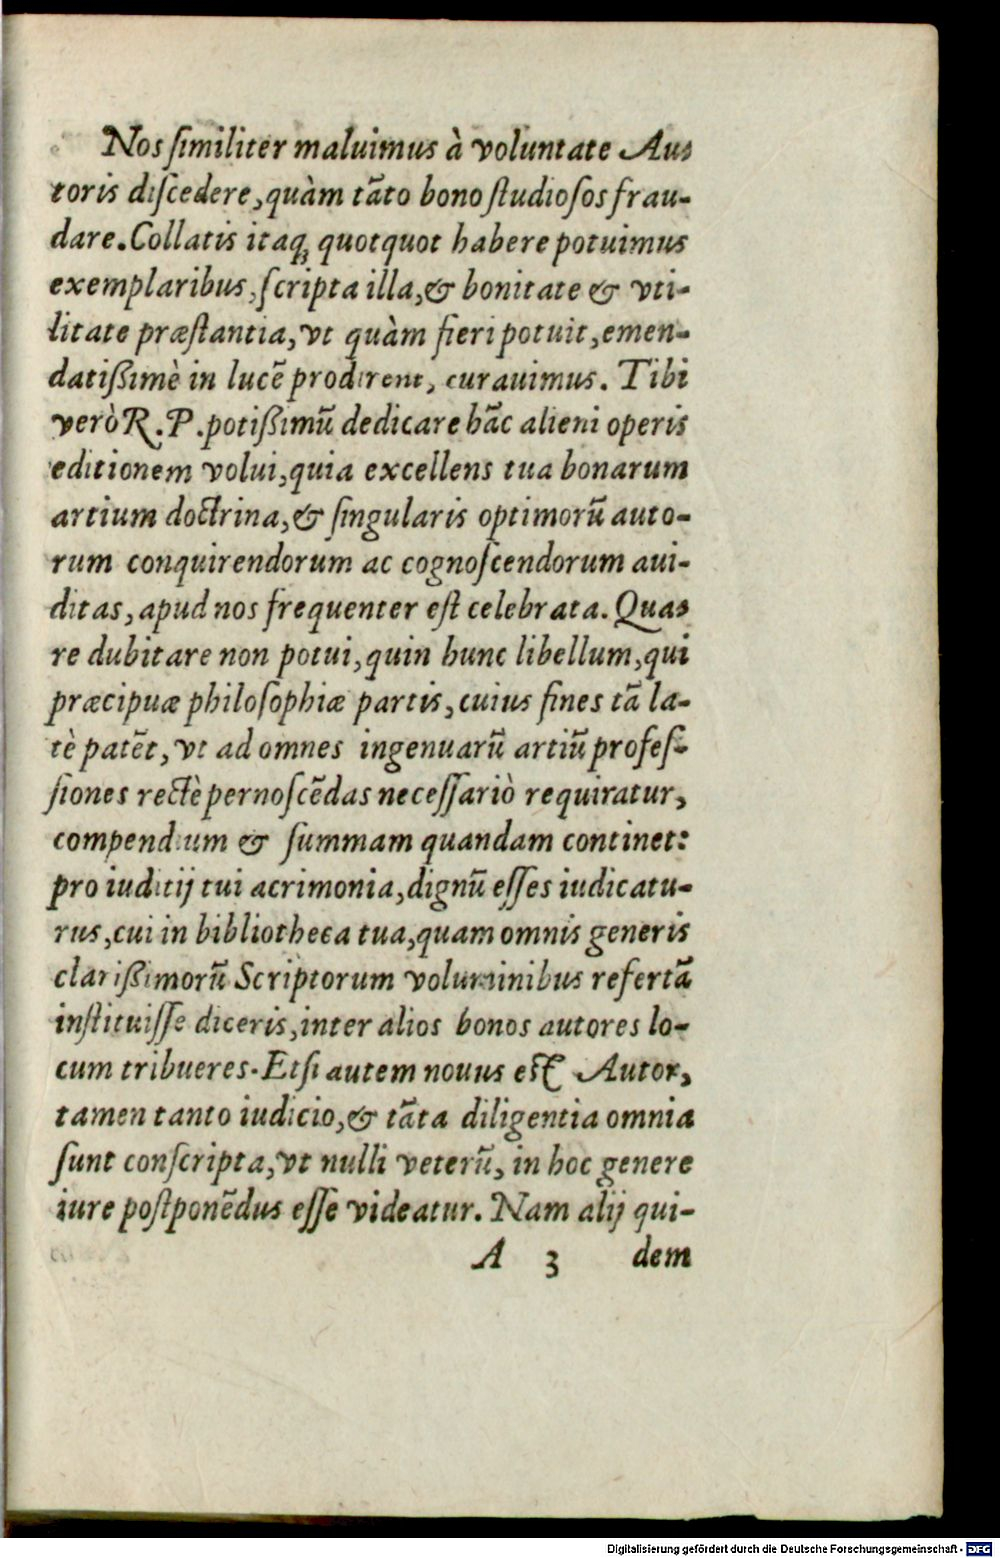 Nos ſimiliter maluimus à voluntate Au-
toris diſcedere, quàm tãto bono ſtudioſos frau-
dare. Collatis itaqꝫ quotquot habere potuimus
exemplaribus, ſcripta illa, & bonitate & vti-
litate præſtantia, vt quàm fieri potuit, emen-
datißimè in lucẽ prodirent, curauimus. Tibi
verò R. P. potißimũ dedicare hãc alieni operis
editionem volui, quia excellens tua bonarum
artium doctrina, & ſingularis optimorũ auto-
rum conquirendorum ac cognoſcendorum aui-
ditas, apud nos frequenter eſt celebrata. Qua-
re dubitare non potui, quin hunc libellum, qui
præcipuæ philoſophiæ partis, cuius fines tã la-
tè patẽt, vt ad omnes ingenuarũ artiũ profeſ-
ſiones rectè pernoſcẽdas neceſſariò requiratur,
compendium & ſummam quandam continet:
pro iuditij tui acrimonia, dignũ eſſes iudicatu-
rus, cui in bibliotheca tua, quam omnis generis
clarißimorũ Scriptorum voluminibus refertã
inſtituiſſe diceris, inter alios bonos autores lo-
cum tribueres. Etſi autem nouus eſt Autor,
tamen tanto iudicio, & tãta diligentia omnia
ſunt conſcripta, vt nulli veterũ, in hoc genere
iure poſtponẽdus eſſe videatur. Nam alij qui-
A 3 dem
Digitalisierung gefördert durch die Deutsche Forschungsgemeinschaft - DFG